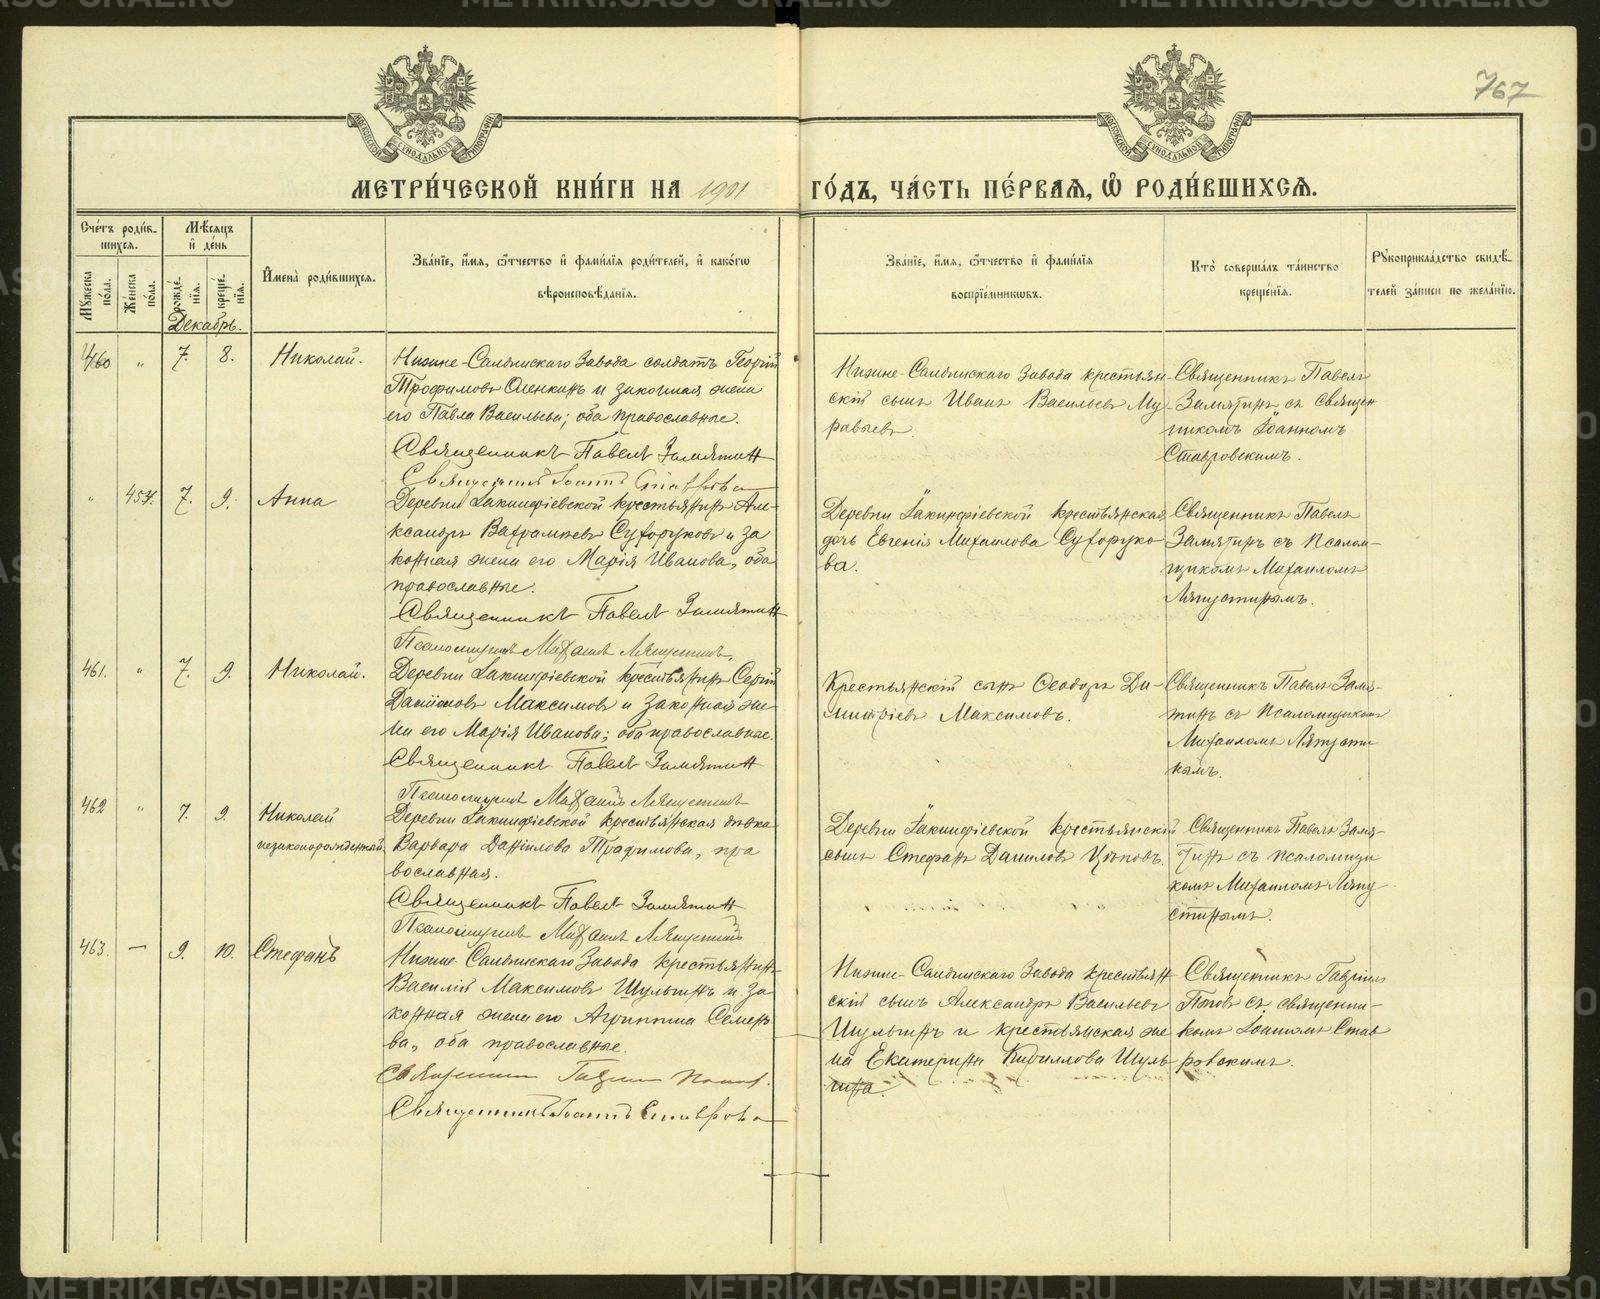 767
МЕТРИ́ЧЕСКОЙ КНИ́ГИ НА 1901 ГО́ДЪ, ЧА́СТЬ ПЕ́РВАѦ, Ѿ РОДИ́ВШИХСѦ.
Сче́тъ роди́в-
шихсѧ.
Мѣ́сѧцъ
и҆ де́нь
Мꙋ́жеска по́ла.
Же́нска по́ла.
рожде́-
нїѧ.
креще́-
нїѧ.
Декабрь.
И҆мена̀ роди́вшихсѧ.
Зва́нїе, и҆́мѧ, ѻ҆́тчество и҆ фами́лїѧ роди́телей, и҆ како́гѡ
вѣроисповѣ́данїѧ.
Зва́нїе, и҆́мѧ, ѻ҆́тчество и҆ фами́лїѧ
воспрїе́мникѡвъ.
Кто̀ соверша́лъ та́инство
креще́нїѧ.
Рꙋкоприкла́дство свидѣ́-
телей за́писи по жела́нїю.
460 " 7. 8. Николай.
Нижне-Салдинскаго Завода солдатъ Георгій
Трофимовъ Оленкинъ и законная жена
его Павла Васильева; оба православные.
Священникъ Павелъ Замятин
Священникъ Іоаннъ Ставров
Нижне-Салдинскаго Завода крестьян
скій сынъ Иванъ Васильевъ Му
равьевъ.
Священникъ Павелъ
Замятинъ съ Священ
никомъ Іоанномъ
Ставровскимъ.
" 454. 7. 9. Анна
Деревни Іакинфіевской крестьянинъ Але-
ксандръ Вахрамѣевъ Сухоруковъ и за
конная жена его Марія Иванова, оба
православные.
Священникъ Павелъ Замятин
Псаломщикъ Михаилъ Ляпустинъ
Деревни Іакинфіевской крестьянская
дочь Евгенія Михаилова Сухоруко
ва.
Священникъ Павелъ
Замятинъ съ Псалом-
щикомъ Михаиломъ
Ляпустинымъ.
461. " 7. 9. Николай.
Деревни Іакинфіевской крестьянинъ Сергій
Максимовъ и законная же
на его Марія Иванова; оба православные.
Священникъ Павелъ Замятин
Псаломщикъ Михаилъ Ляпустинъ
Крестьянскій сынъ Ѳеодоръ Ди-
митріевъ Максимовъ.
Священникъ Павелъ Замя-
тинъ съ Псаломщикомъ
Михаиломъ Ляпусти
нымъ.
462 " 7. 9. Николай
незаконорожденный.
Деревни Іакинфіевской крестьянская дѣвка
Варвара Даніилова Трафимова, пра
вославная.
Священникъ Павелъ Замятин
Псаломщикъ Михаилъ Ляпустинъ
Деревни Іакинфіевской крестьянскій
сынъ Стефанъ Даниловъ Цѣповъ.
Священникъ Павелъ Замя-
тинъ съ псаломщи
комъ Михаиломъ Ляпу
стинымъ.
463. — 9. 10. Стефанъ
Нижне-Салдинскаго Завода крестьянинъ
Василій Максимовъ Шульгинъ и за
конная жена его Агриппина Семено
ва, оба православные.
Священник Гавриил Попов.
Священникъ Іоаннъ Ставров
Нижне-Салдинскаго Завода крестьян
скій сынъ Александръ Васильевъ
Шульгинъ и крестьянская же
на Екатерина Кириллова Шуль
гина.
Священникъ Гавріилъ
Поповъ съ священни-
комъ Іоанномъ Став
ровскимъ.